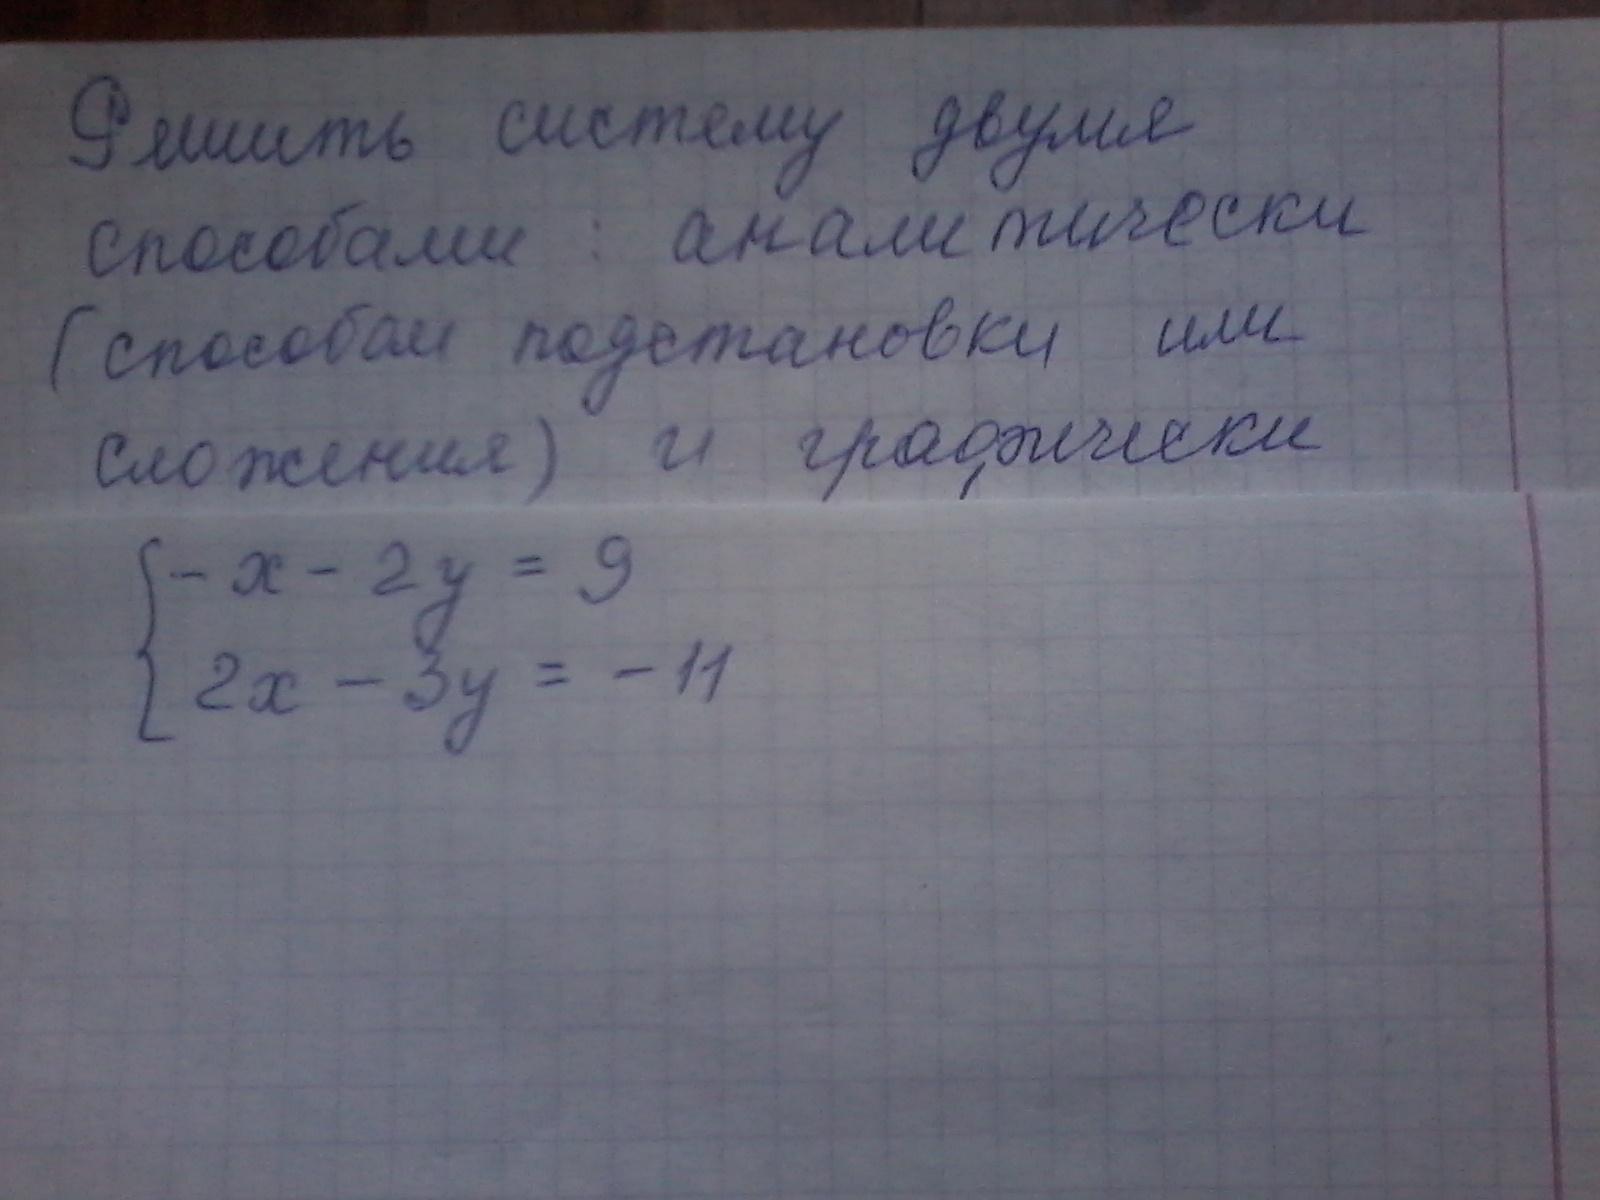 Решить систему двумя
способами: аналитически
(способом подстановки или
сложения) и графически
{-x - 2y = 9
2x - 3y = -11